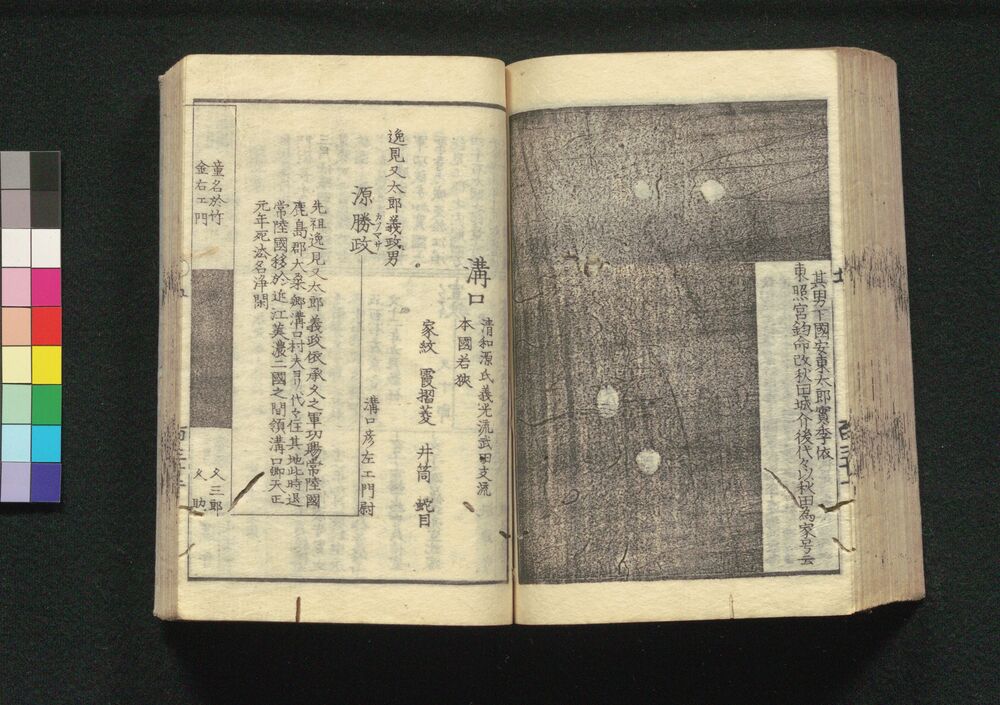 其男下國安東太郎實季依
東照宮鈞命改秋田城介後代々以秋田為家号云
溝口
清和源氏義光流武田支流
本國若狹
家紋 霞摺菱 井筒 蛇目
逸見又太郎義政男
源勝政
カツマサ
溝口彦左エ門尉
先祖逸見又太郎義政依承久之軍功賜常陸國
鹿島郡大桑郷溝口村夫ヨリ代々住其地此時退
常陸國移於近江美濃二國之間領溝口郷天正
元年死法名浄閑
童名於竹
金右エ門
又三郎
又助